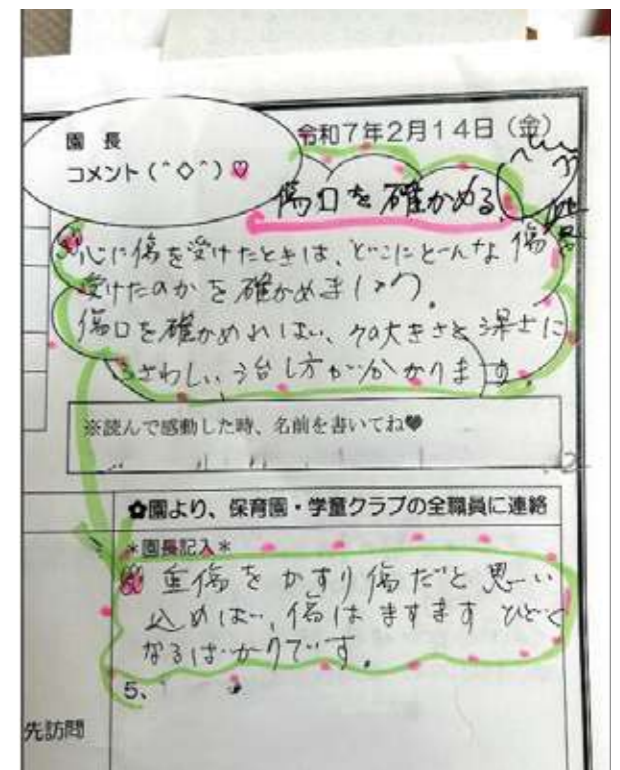 園 長
コメント(^◇^)♡
令和7年2月14日(金)
傷口を確かめる
心に傷を受けたときは、どこにどんな傷を
受けたのかを確かめましょう。
傷口を確かめれば、その大きさと深さに
ふさわしい治し方が分かります。
※読んで感動した時、名前を書いてね♥
✿園より、保育園・学童クラブの全職員に連絡
*園長記入*
重傷をかすり傷だと思い
込めば、傷はますますひどく
なるばかりです。
5、
先訪問